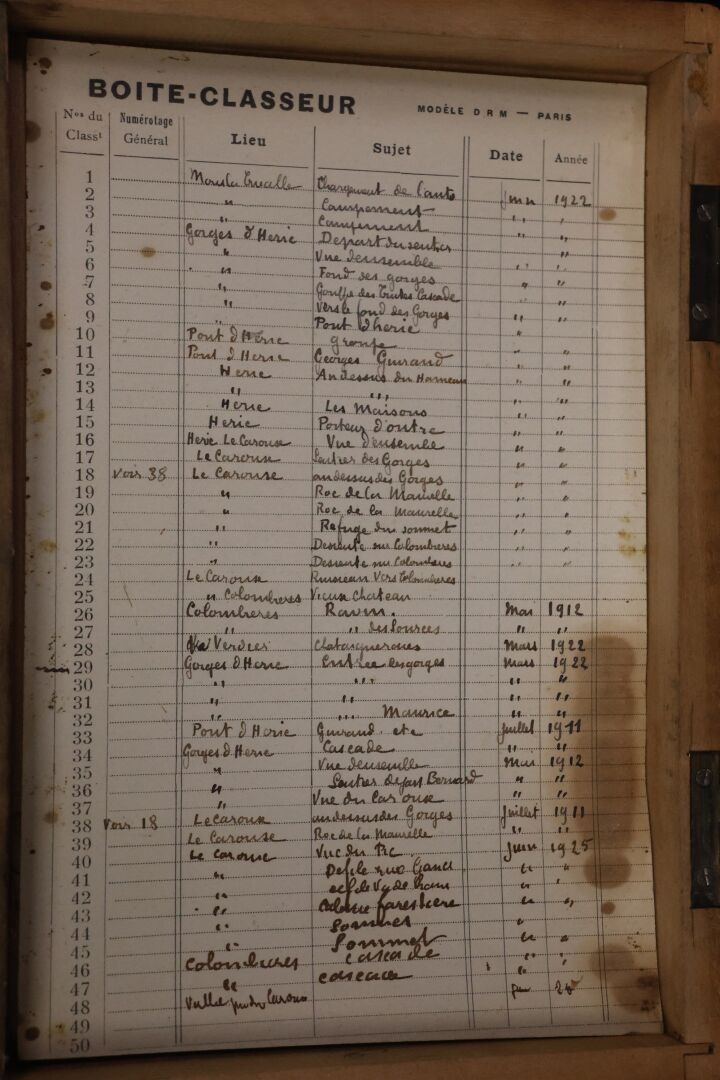 BOITE-CLASSEUR MODÈLE D R M — PARIS
Nos du Classt Numérotage Général Lieu Sujet Date Année
1 Chargement de l'auto Juin 1922
2 " Campement " "
3 " Campement " "
4 Gorges d'Heric Depart du sentier "
5 " Vue densemble "
6 " Fond des gorges " "
7 " Gouffre des Truites Cascade " "
8 " Vers le fond des Gorges " "
9 Pont d'heric "
10 Pont d'Heric groupe " "
11 Pont d'Heric Georges Guirand " "
12 Heric Au dessus du Hameau " "
13 " " " "
14 Heric Les Maisons " "
15 Heric Porteur d'outre " "
16 Heric Le Caroux Vue d'ensemble " "
17 Le Caroux Sentier des Gorges " "
18 Voir 38 Le Carouse au dessus des Gorges " "
19 " Roc de la Maurelle " "
20 " Roc de la Maurelle " "
21 " Refuge du sommet " "
22 " Descente sur Colombieres " "
23 " Descente sur Colombieres " "
24 Le Caroux Ruisseau Vers Colombieres
25 " Colombieres Vieux Chateau
26 Colombieres Ravin. Mai 1912
27 " " des Sources " "
28 Verdier Chataigneraies Mars 1922
29 Gorges d'Heric Entrée des gorges Mars 1922
30 " " " "
31 " " " "
32 " " Maurice " "
33 Pont d'Heric Guirand etc Juillet 1911
34 Gorges d'Heric Cascade " "
35 " Vue densemble Mai 1912
36 " Sentier de Jean Bernard " "
37 " Vue du Caroux
38 Voir 18 Le Caroux au dessus des Gorges Juillet 1911
39 Le Carouse Roc de la Maurelle " "
40 Le Caroux Vue du Pic Juin 1925
41 " " "
42 "
43 " forestiere " "
44 " Sommet "
45 " Sommet " "
46 Colombieres cascade " "
47 " cascade "
48 Caroux
49
50